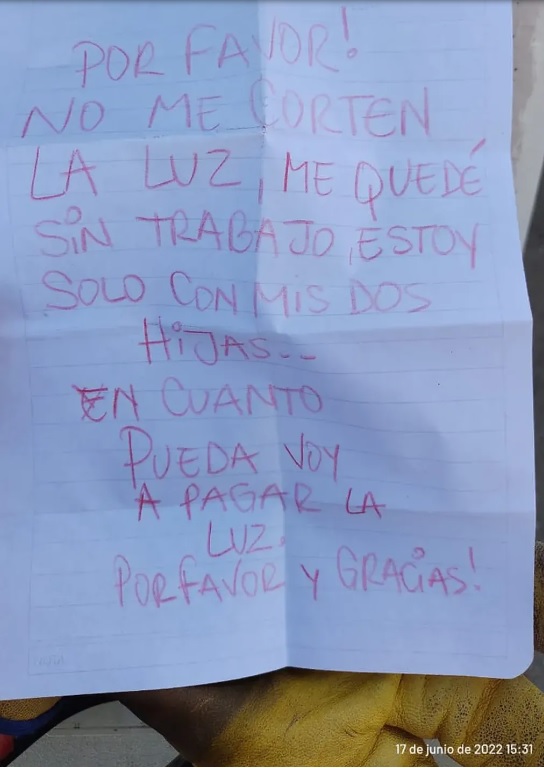 POR FAVOR!
NO ME CORTEN
LA LUZ, ME QUEDÉ
SIN TRABAJO, ESTOY
SOLO CON MIS DOS
HIJAS...
EN CUANTO
PUEDA VOY
A PAGAR LA
LUZ.
POR FAVOR Y GRACIAS!
17 de junio de 2022 15:31